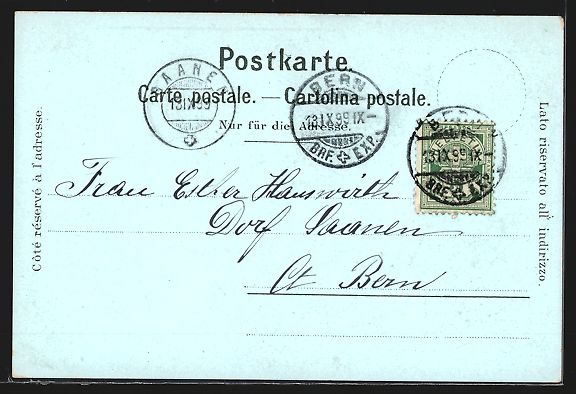 Postkarte.
Carte postale. — Cartolina postale.
Nur für die Adresse.
Côté réservé à l'adresse.
Lato riservato all' indirizzo.
SAANEN
13 IX 99
BERN
13 IX 99 IX–
BRF. EXP.
BERN
13 IX 99 IX–
BRF. EXP.
HELVETIA
Frau Esther Hauswirth
Dorf Saanen
Ct. Bern